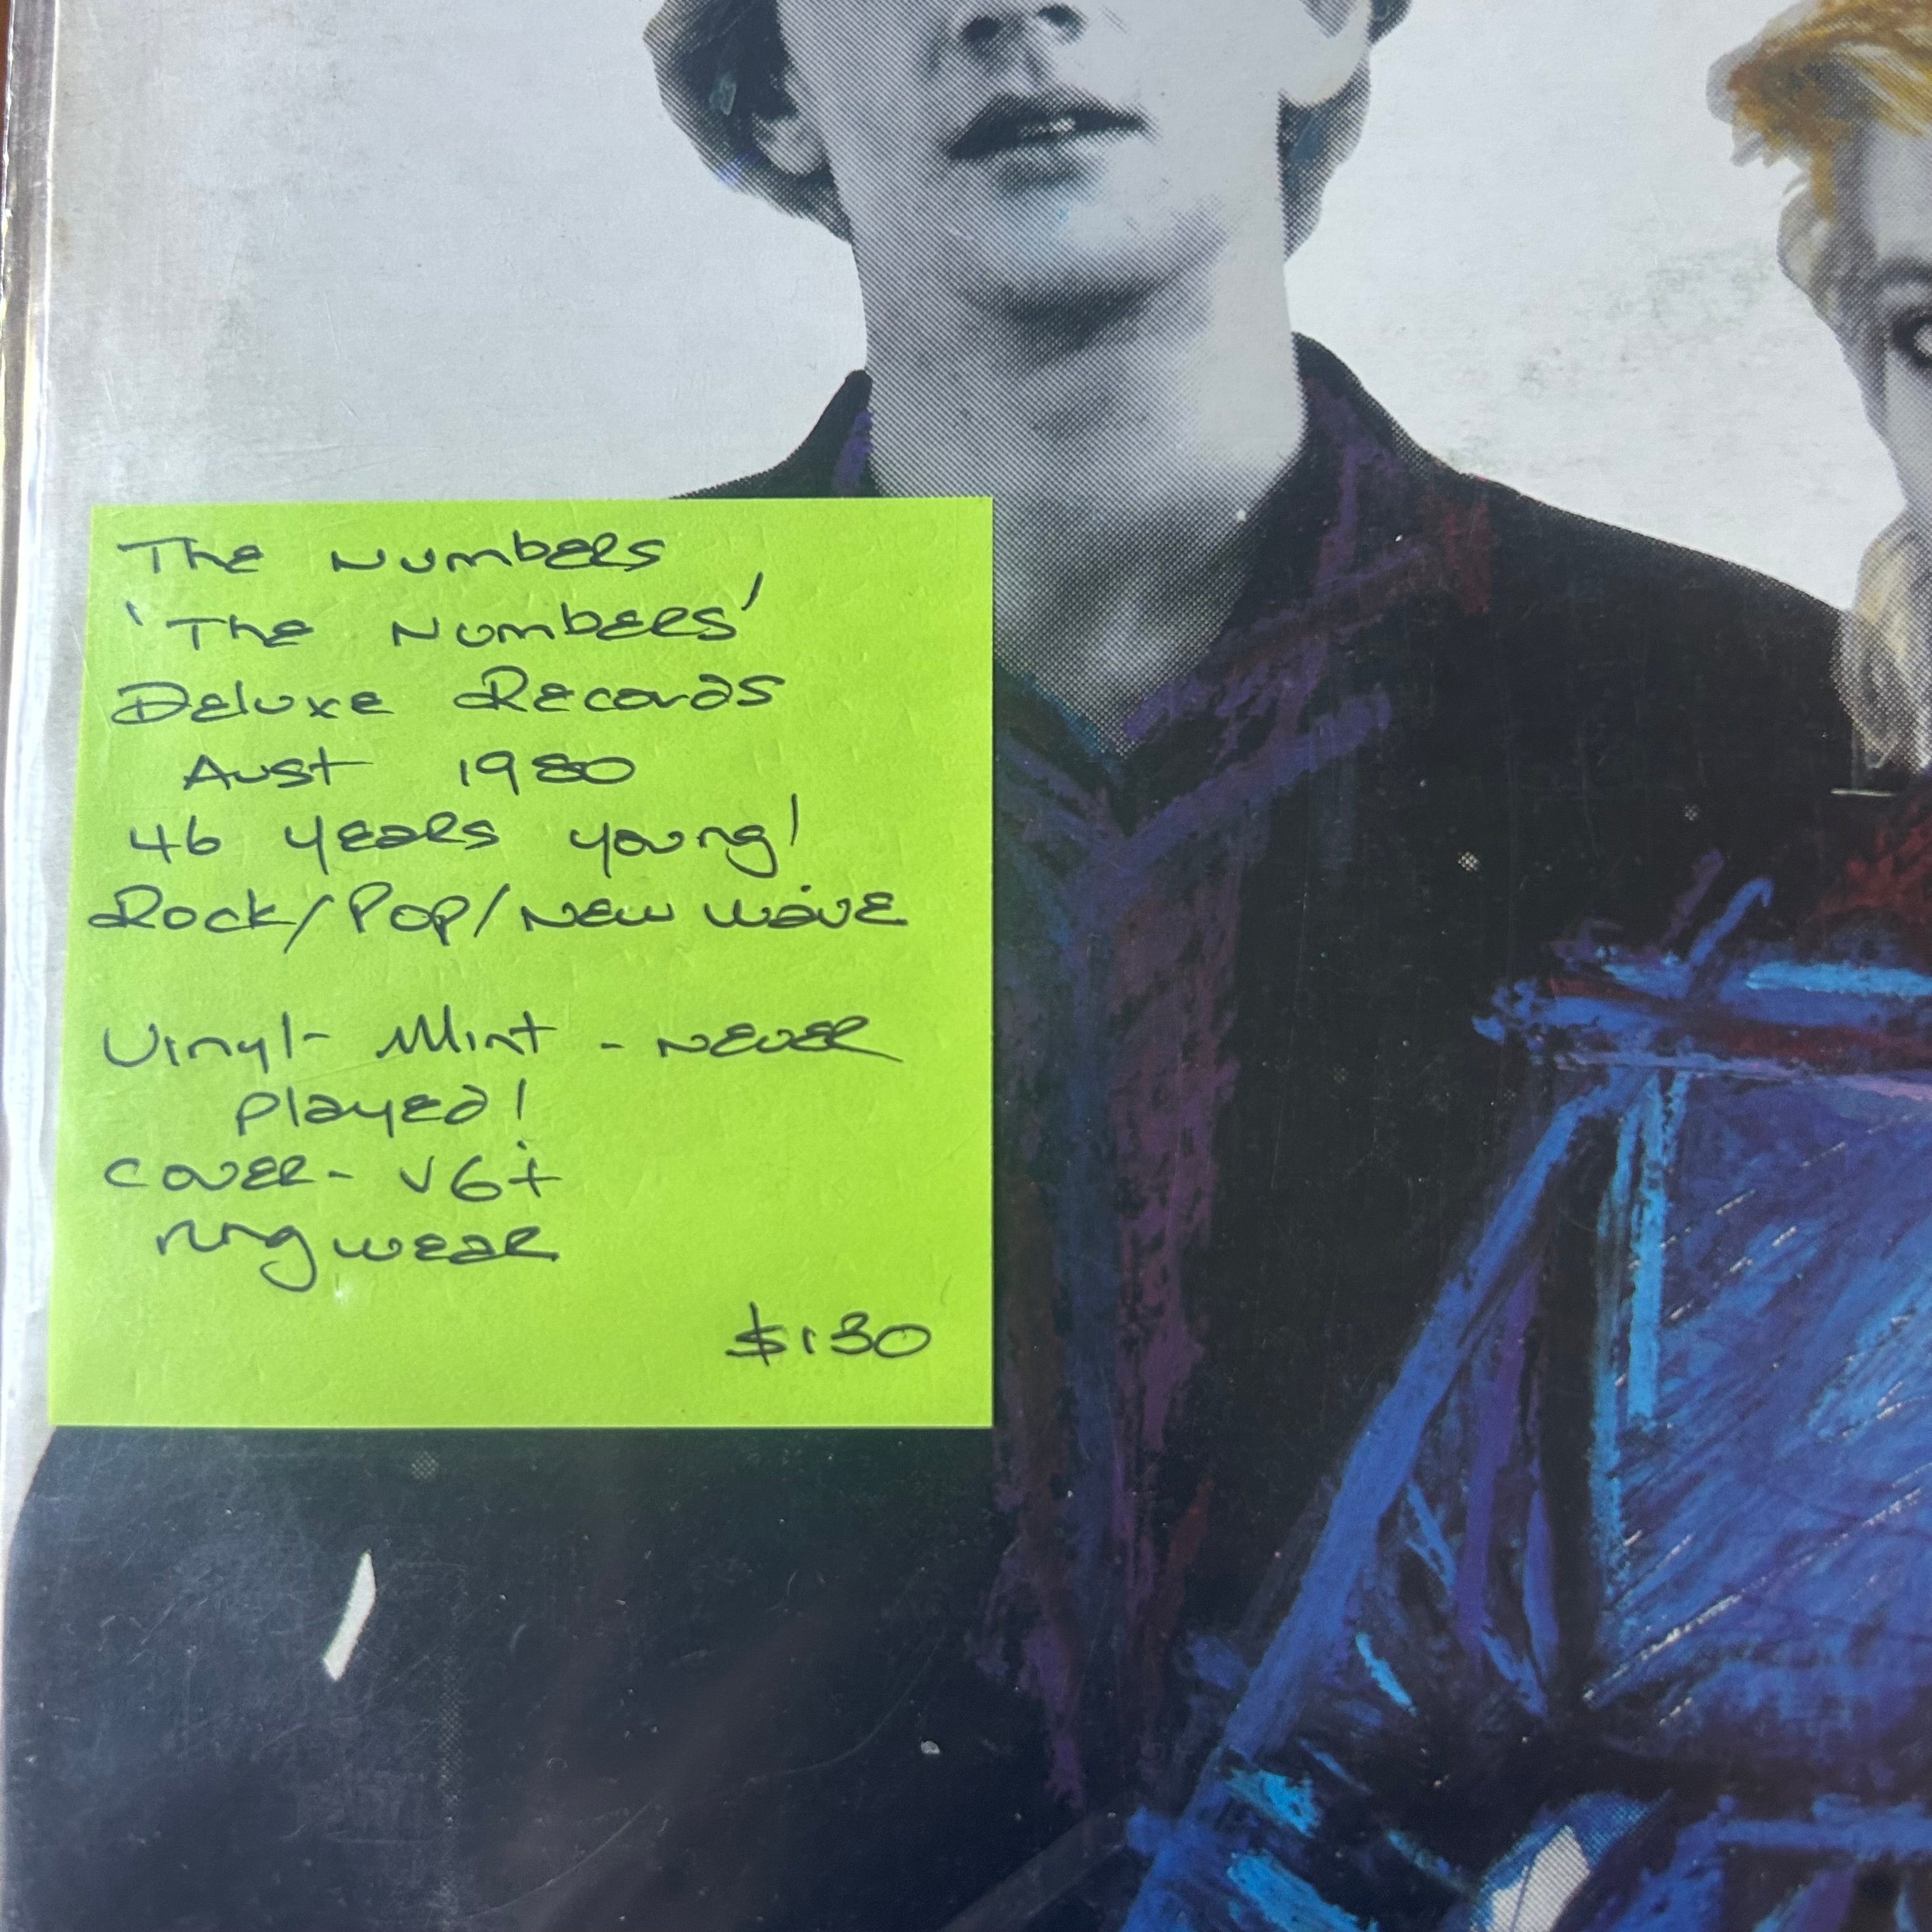 The Numbers
'The Numbers'
Deluxe Records
Aust 1980
46 years young!
Rock/Pop/New Wave
Vinyl- Mint - Never
played!
Cover- VG+
ring wear
$130